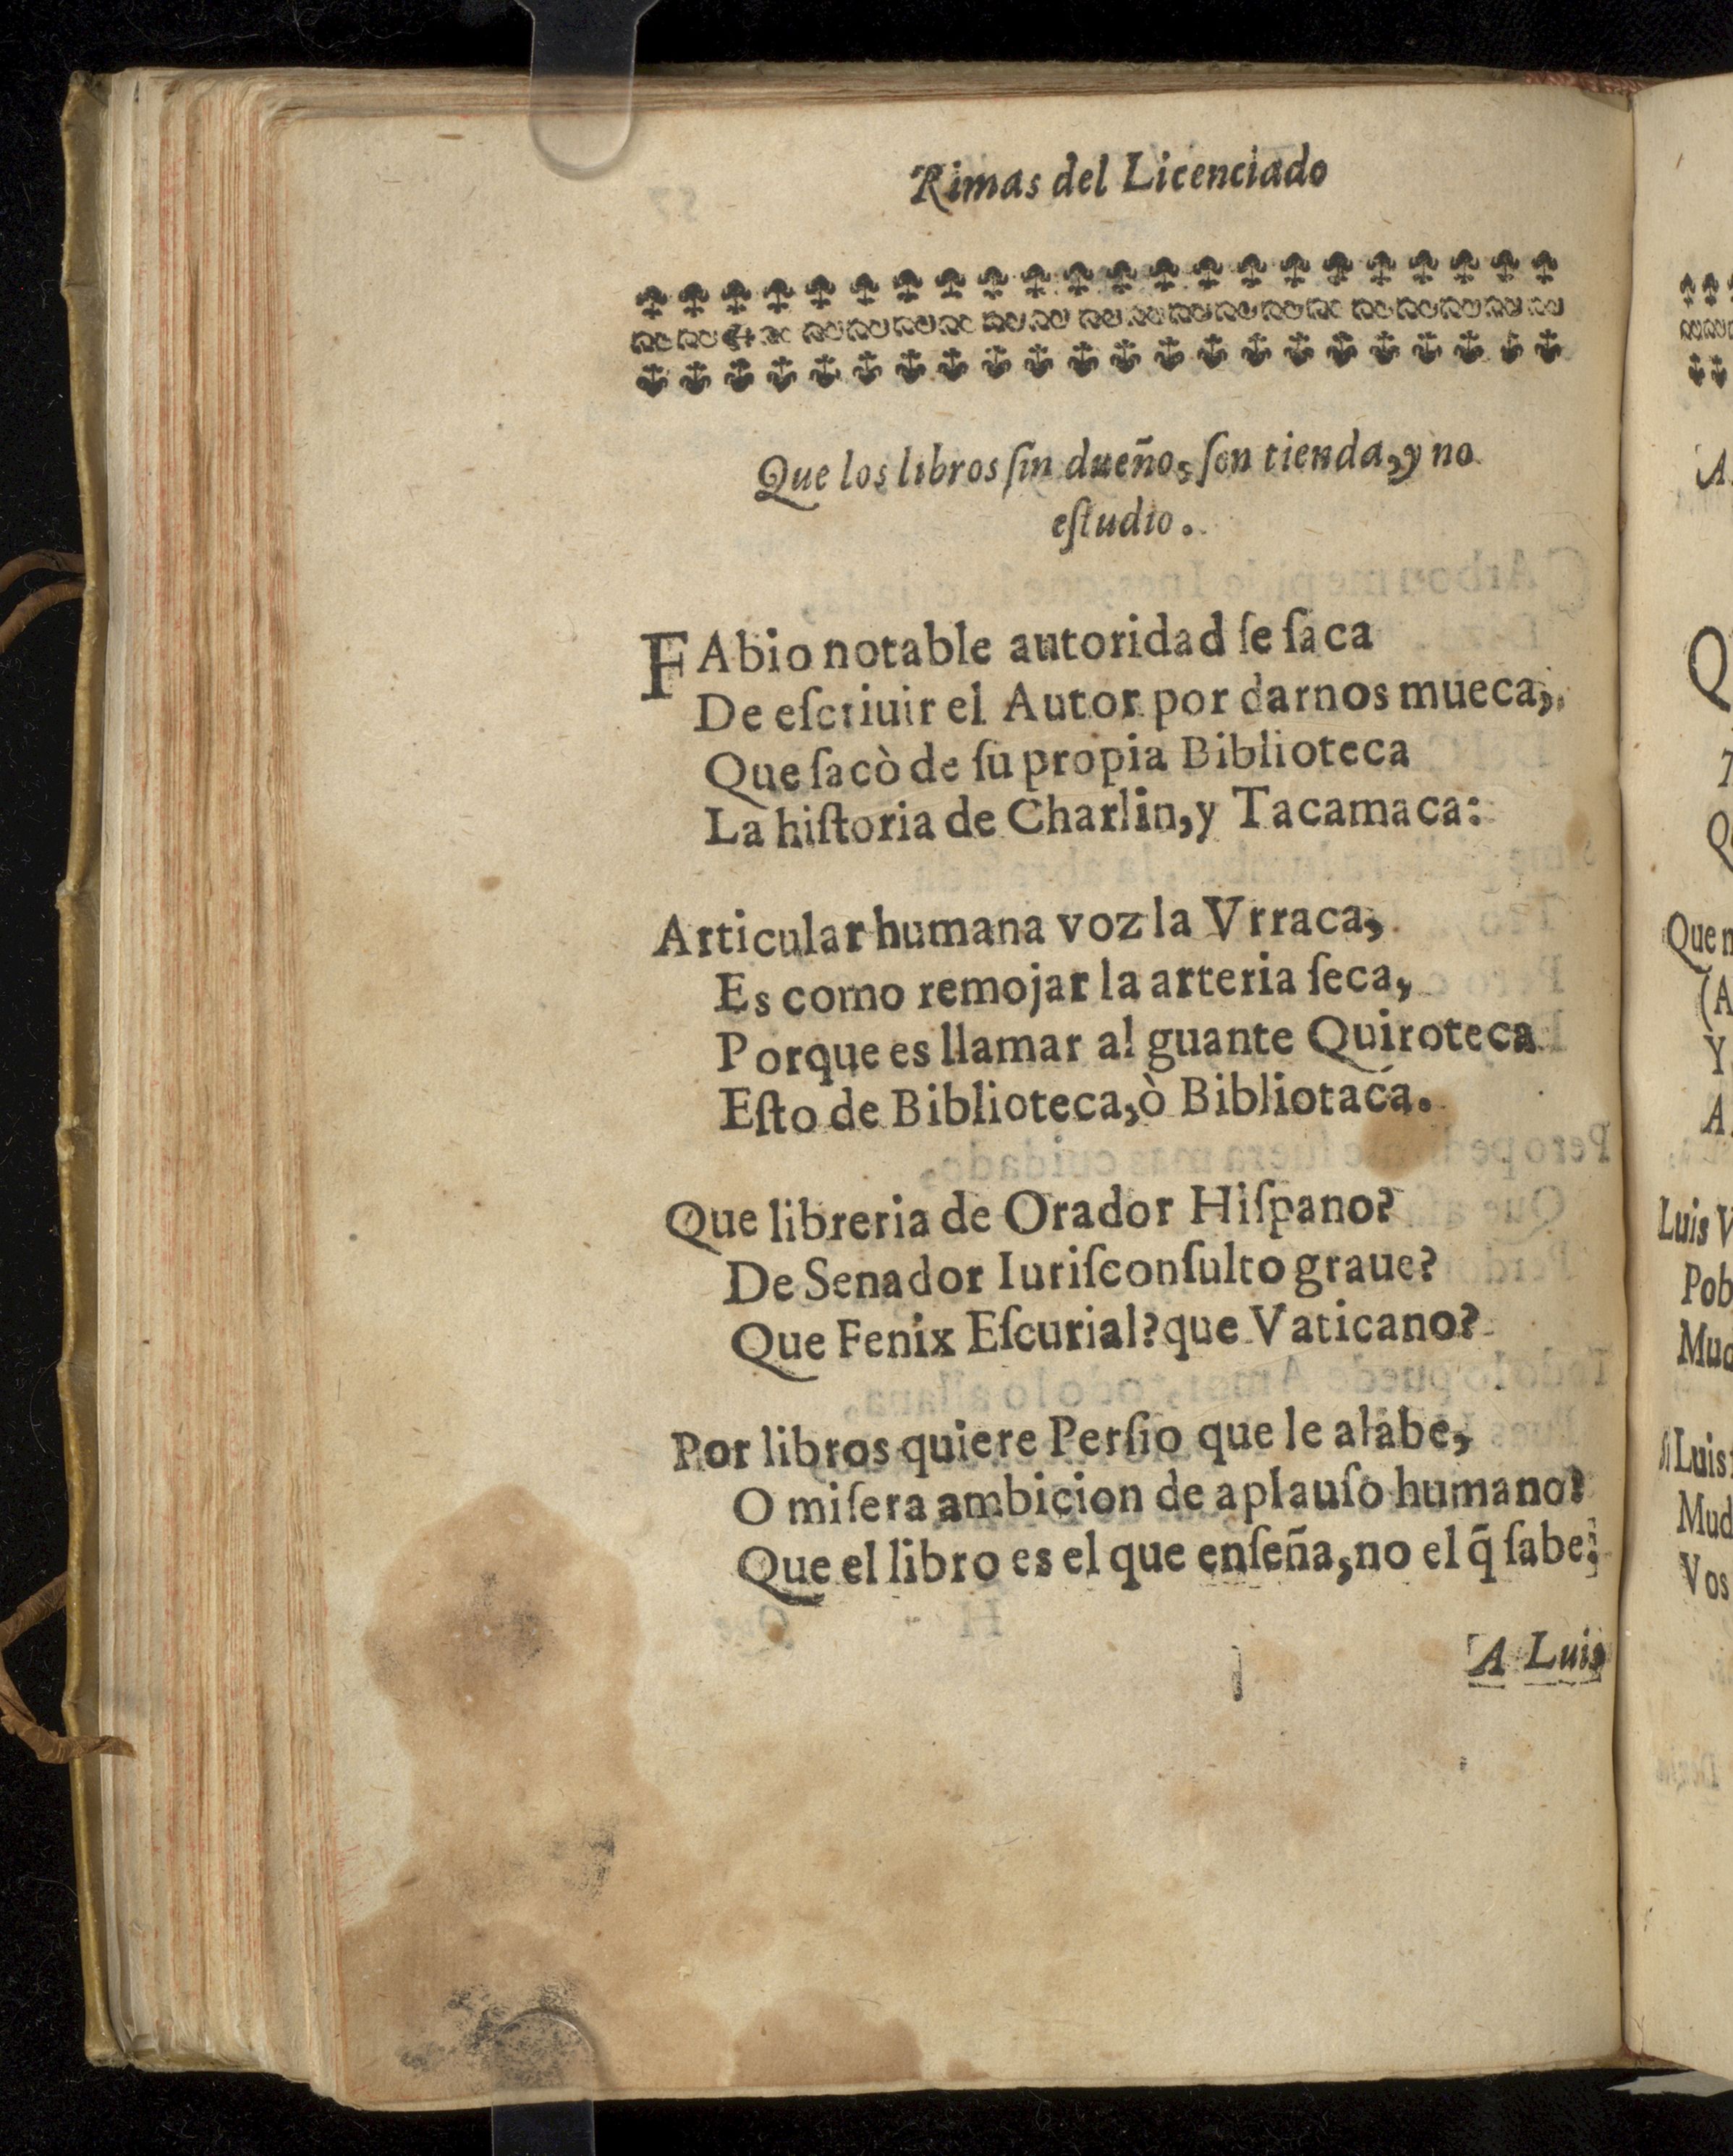 Rimas del Licenciado
Que los libros ſin dueño, ſon tienda, y no
eſtudio.
FAbio notable autoridad ſe ſaca
De eſcriuir el Autor por darnos mueca,
Que ſacò de ſu propia Biblioteca
La hiſtoria de Charlin, y Tacamaca:
Articular humana voz la Vrraca,
Es como remojar la arteria ſeca,
Porque es llamar al guante Quiroteca
Eſto de Biblioteca, ò Bibliotaca.
Que libreria de Orador Hiſpano?
De Senador Iuriſconſulto graue?
Que Fenix Eſcurial? que Vaticano?
Por libros quiere Perſio que le alabe,
O miſera ambicion de aplauſo humano?
Que el libro es el que enſeña, no el q̃ ſabe;
A Luis
Que
Luis
Pob
Luis
Mud
Vos